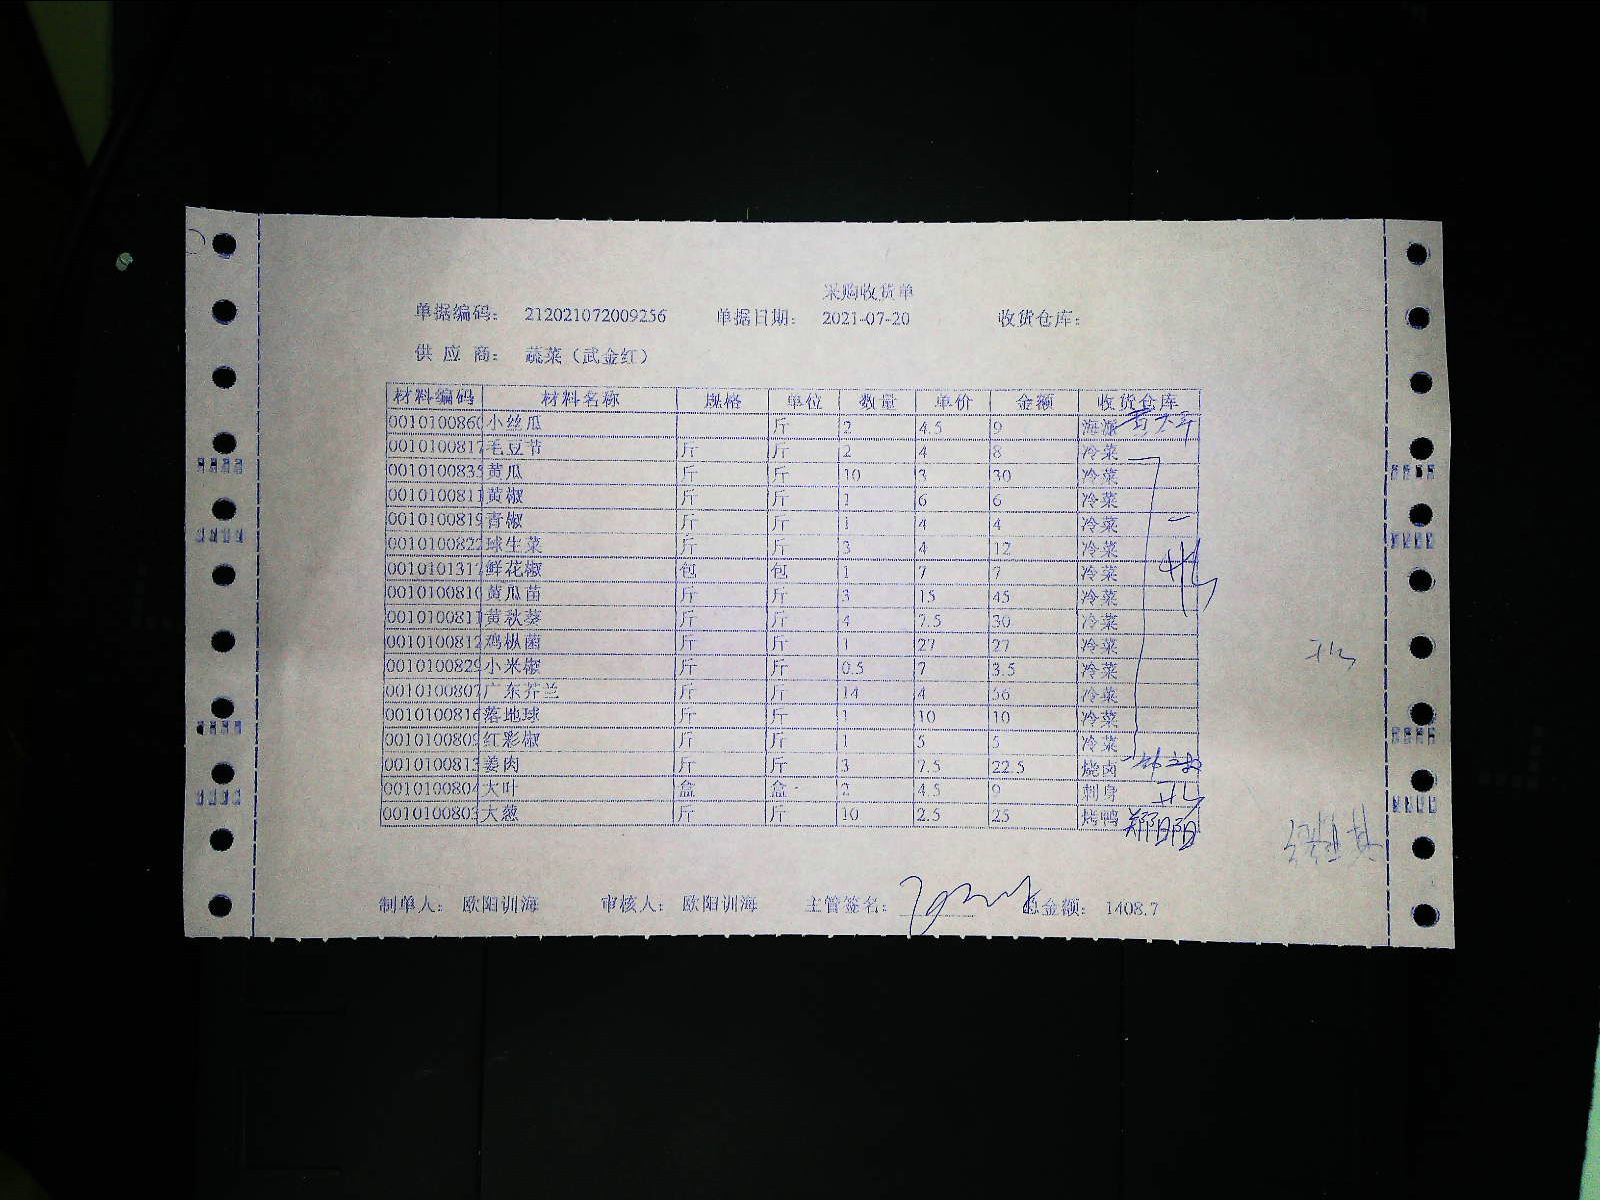 采购收货单
单据编码： 212021072009256 单据日期： 2021-07-20 收货仓库：
供 应 商： 蔬菜（武金红）
材料编码 材料名称 规格 单位 数量 单价 金额 收货仓库
0010100860 小丝瓜 斤 2 4.5 9 海派
0010100817 毛豆节 斤 斤 2 4 8 冷菜
0010100835 黄瓜 斤 斤 10 3 30 冷菜
0010100811 黄椒 斤 斤 1 6 6 冷菜
0010100819 青椒 斤 斤 1 4 4 冷菜
0010100822 球生菜 斤 斤 3 4 12 冷菜
0010101317 鲜花椒 包 包 1 7 7 冷菜
0010100810 黄瓜苗 斤 斤 3 15 45 冷菜
0010100811 黄秋葵 斤 斤 4 7.5 30 冷菜
0010100812 鸡枞菌 斤 斤 1 27 27 冷菜
0010100829 小米椒 斤 斤 0.5 7 3.5 冷菜
0010100807 广东芥兰 斤 斤 14 4 56 冷菜
0010100816 落地球 斤 斤 1 10 10 冷菜
0010100809 红彩椒 斤 斤 1 5 5 冷菜
0010100813 姜肉 斤 斤 3 7.5 22.5 烧卤
0010100804 大叶 盒 盒 2 4.5 9 刺身
0010100803 大葱 斤 斤 10 2.5 25 烤鸭
制单人： 欧阳训海 审核人： 欧阳训海 主管签名： 总金额： 1408.7